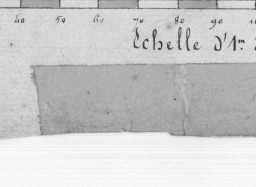 40 50 60 70 80 90
Echelle d'1m